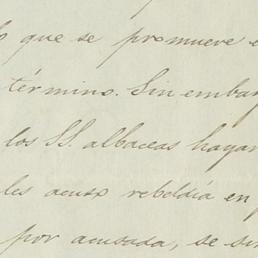 que se promueve
término. Sin embar
los SS. albaceas hayan
les acuso rebeldía en
por acusada, se